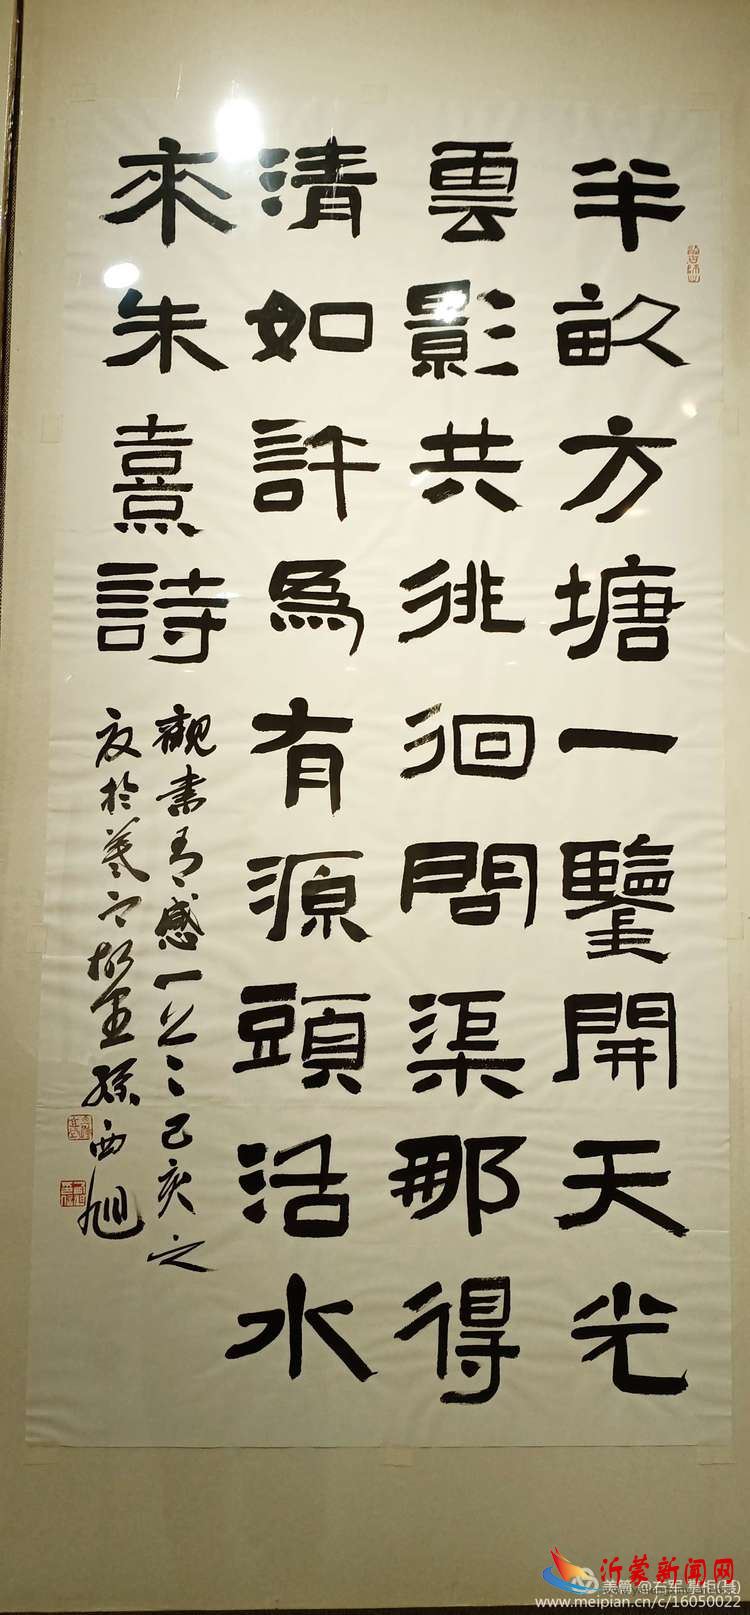 半畝方塘一鑿開天光
雲影共徘徊問渠那得
清如許為有源頭活水
來朱熹詩
觀書有感一首己亥之
夏於羲之故里孫西旭
沂蒙新闻网
美篇 @石军 掌柜(喆)
www.meipian.cn/c/16050022